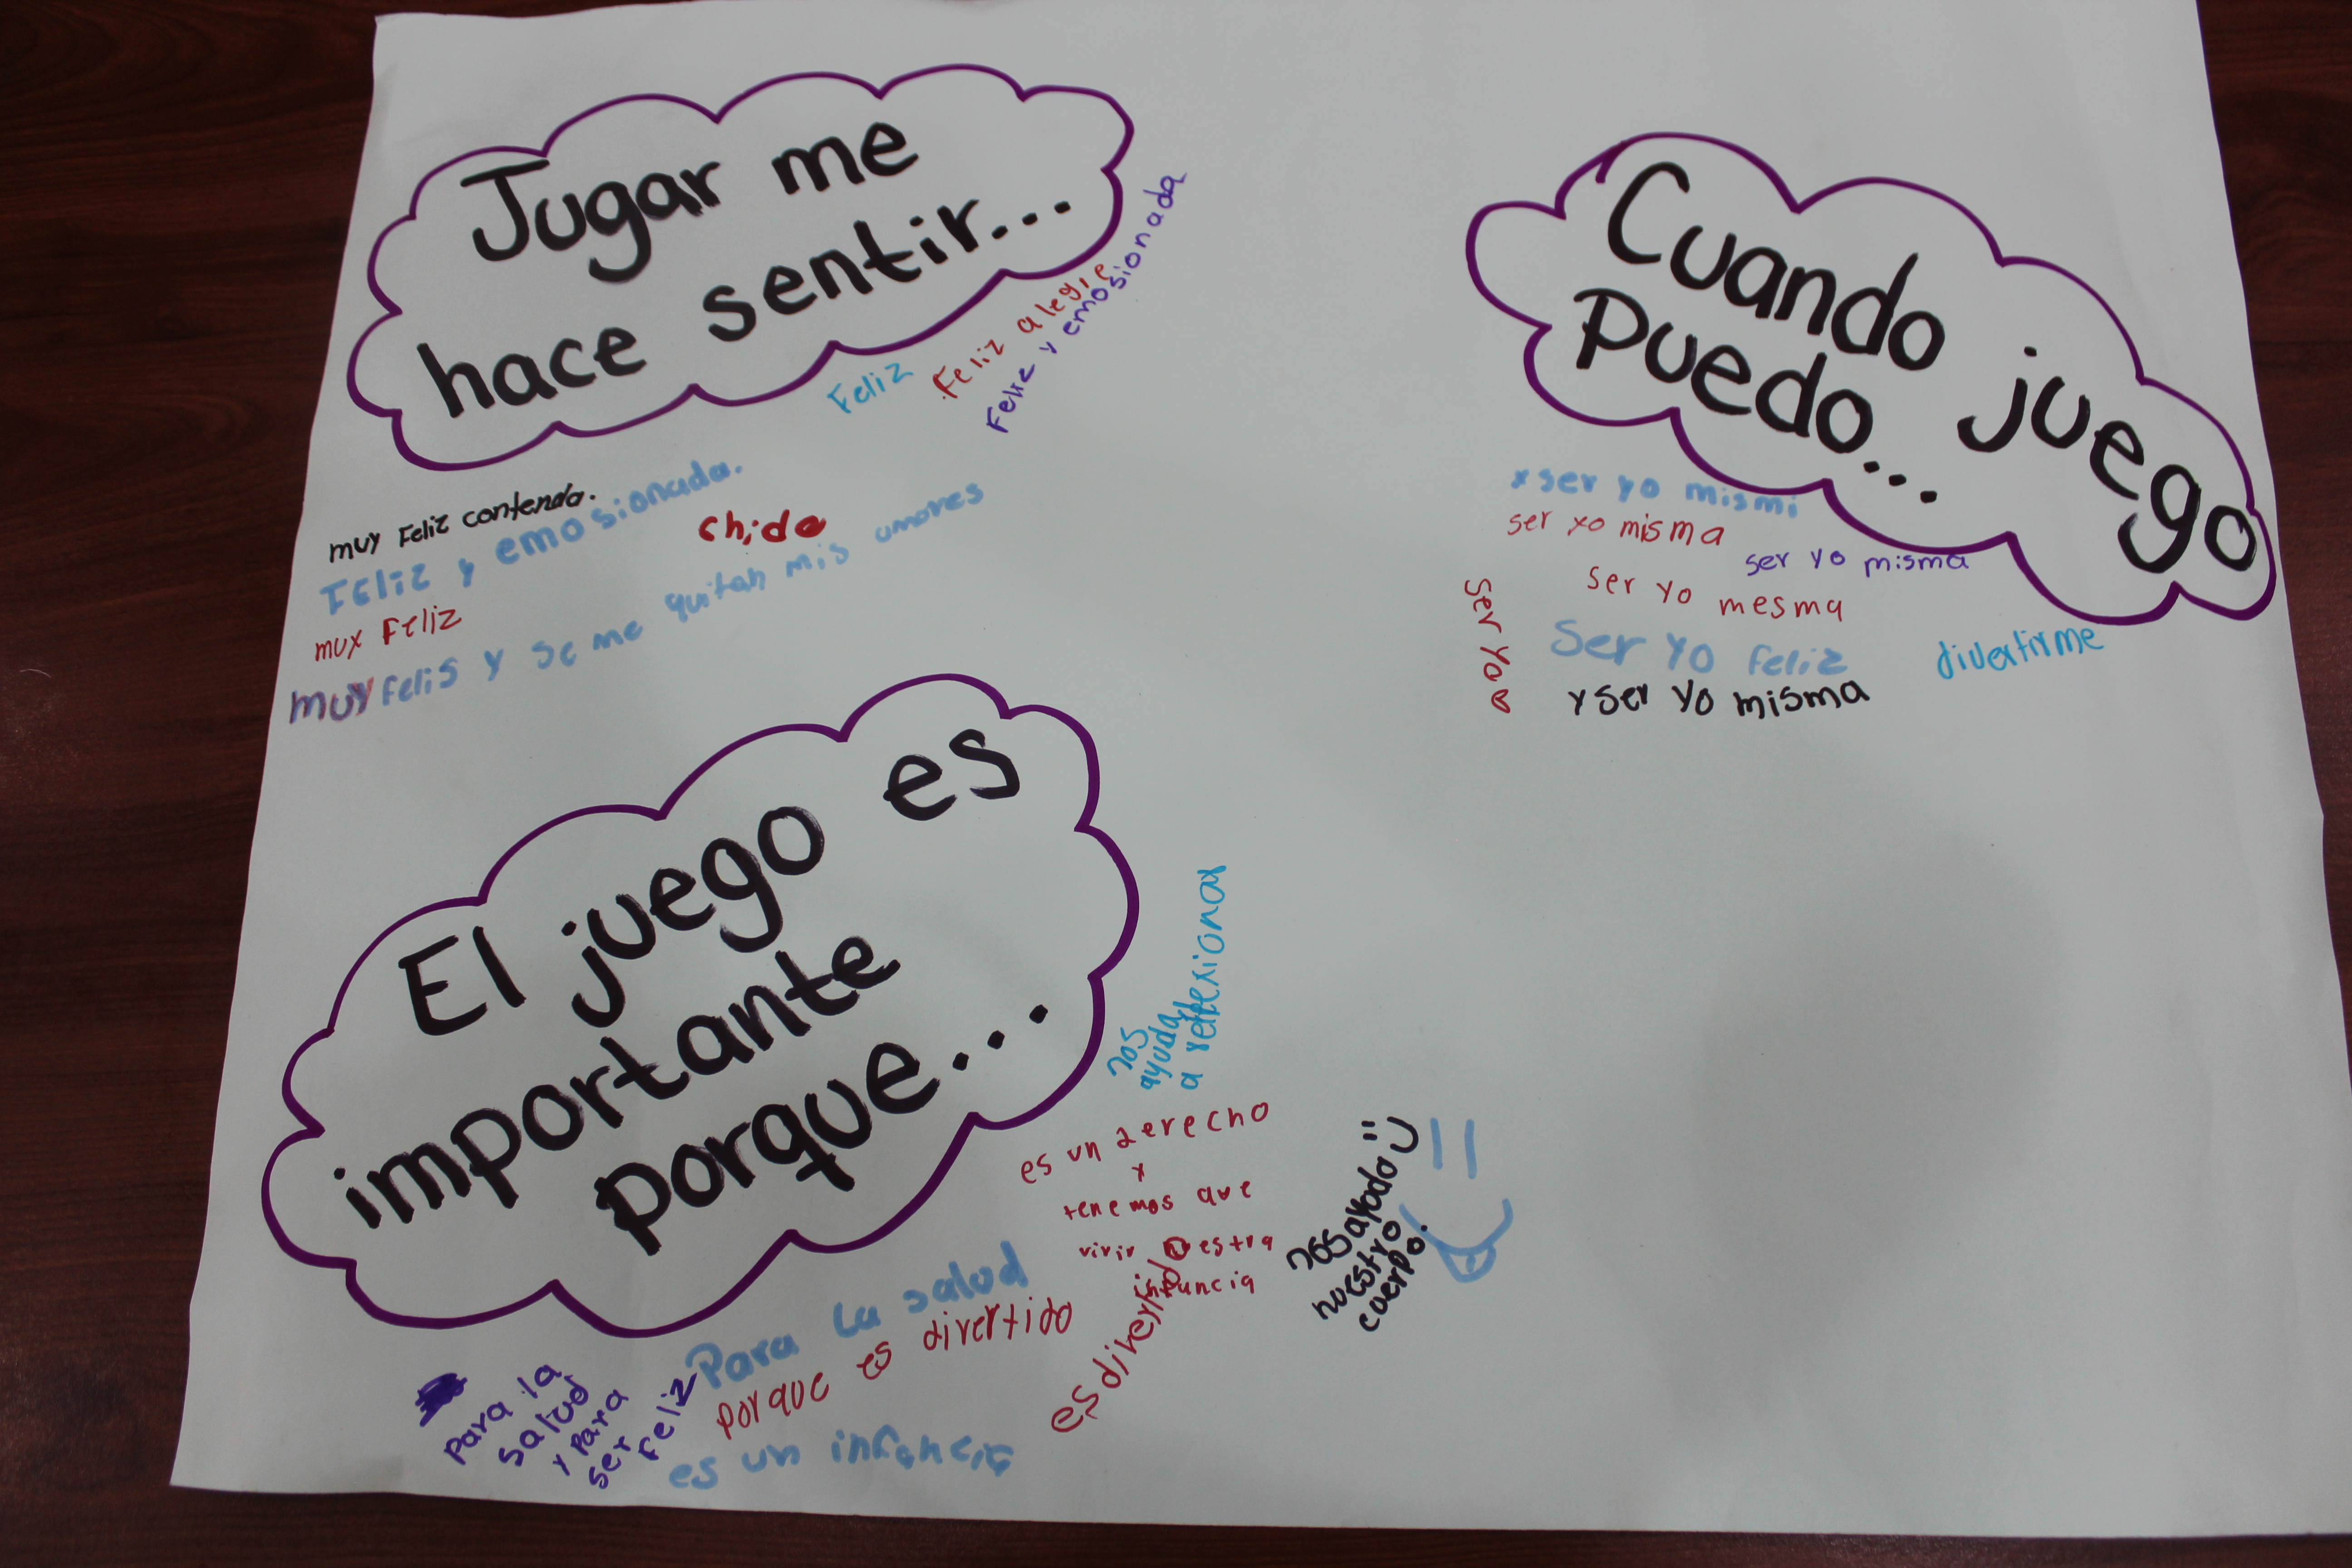 Jugar me
hace sentir...
Feliz
Feliz alegre
Feliz y emosionada
muy Feliz contenda.
Feliz y emosionada.
chido
mux Feliz
muy felis y se me quitan mis amores
Cuando juego
Puedo...
x ser yo mismi
ser xo misma
ser yo misma
ser yo mesma
ser yo
Ser Yo Feliz
divertirme
y ser yo misma
El juego es
importante
porque...
nos
ayuda
a reflexionar
es un derecho
x
tenemos que
vivir nuestra
infancia
nos ayudo
nuestro
cuerpo.
Para la salud
porque es divertido
es divertido
es un infancia
Para la
salud
y para
ser
feliz